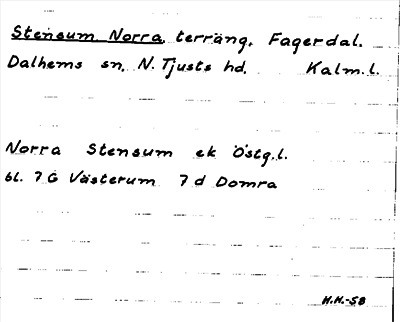 Stensum Norra, terräng, Fagerdal.
Dalhems sn, N. Tjusts hd, Kalm.l.
Norra Stensum ek Östg.l.
bl. 7 G Västerum 7 d Domra
H.H.-58